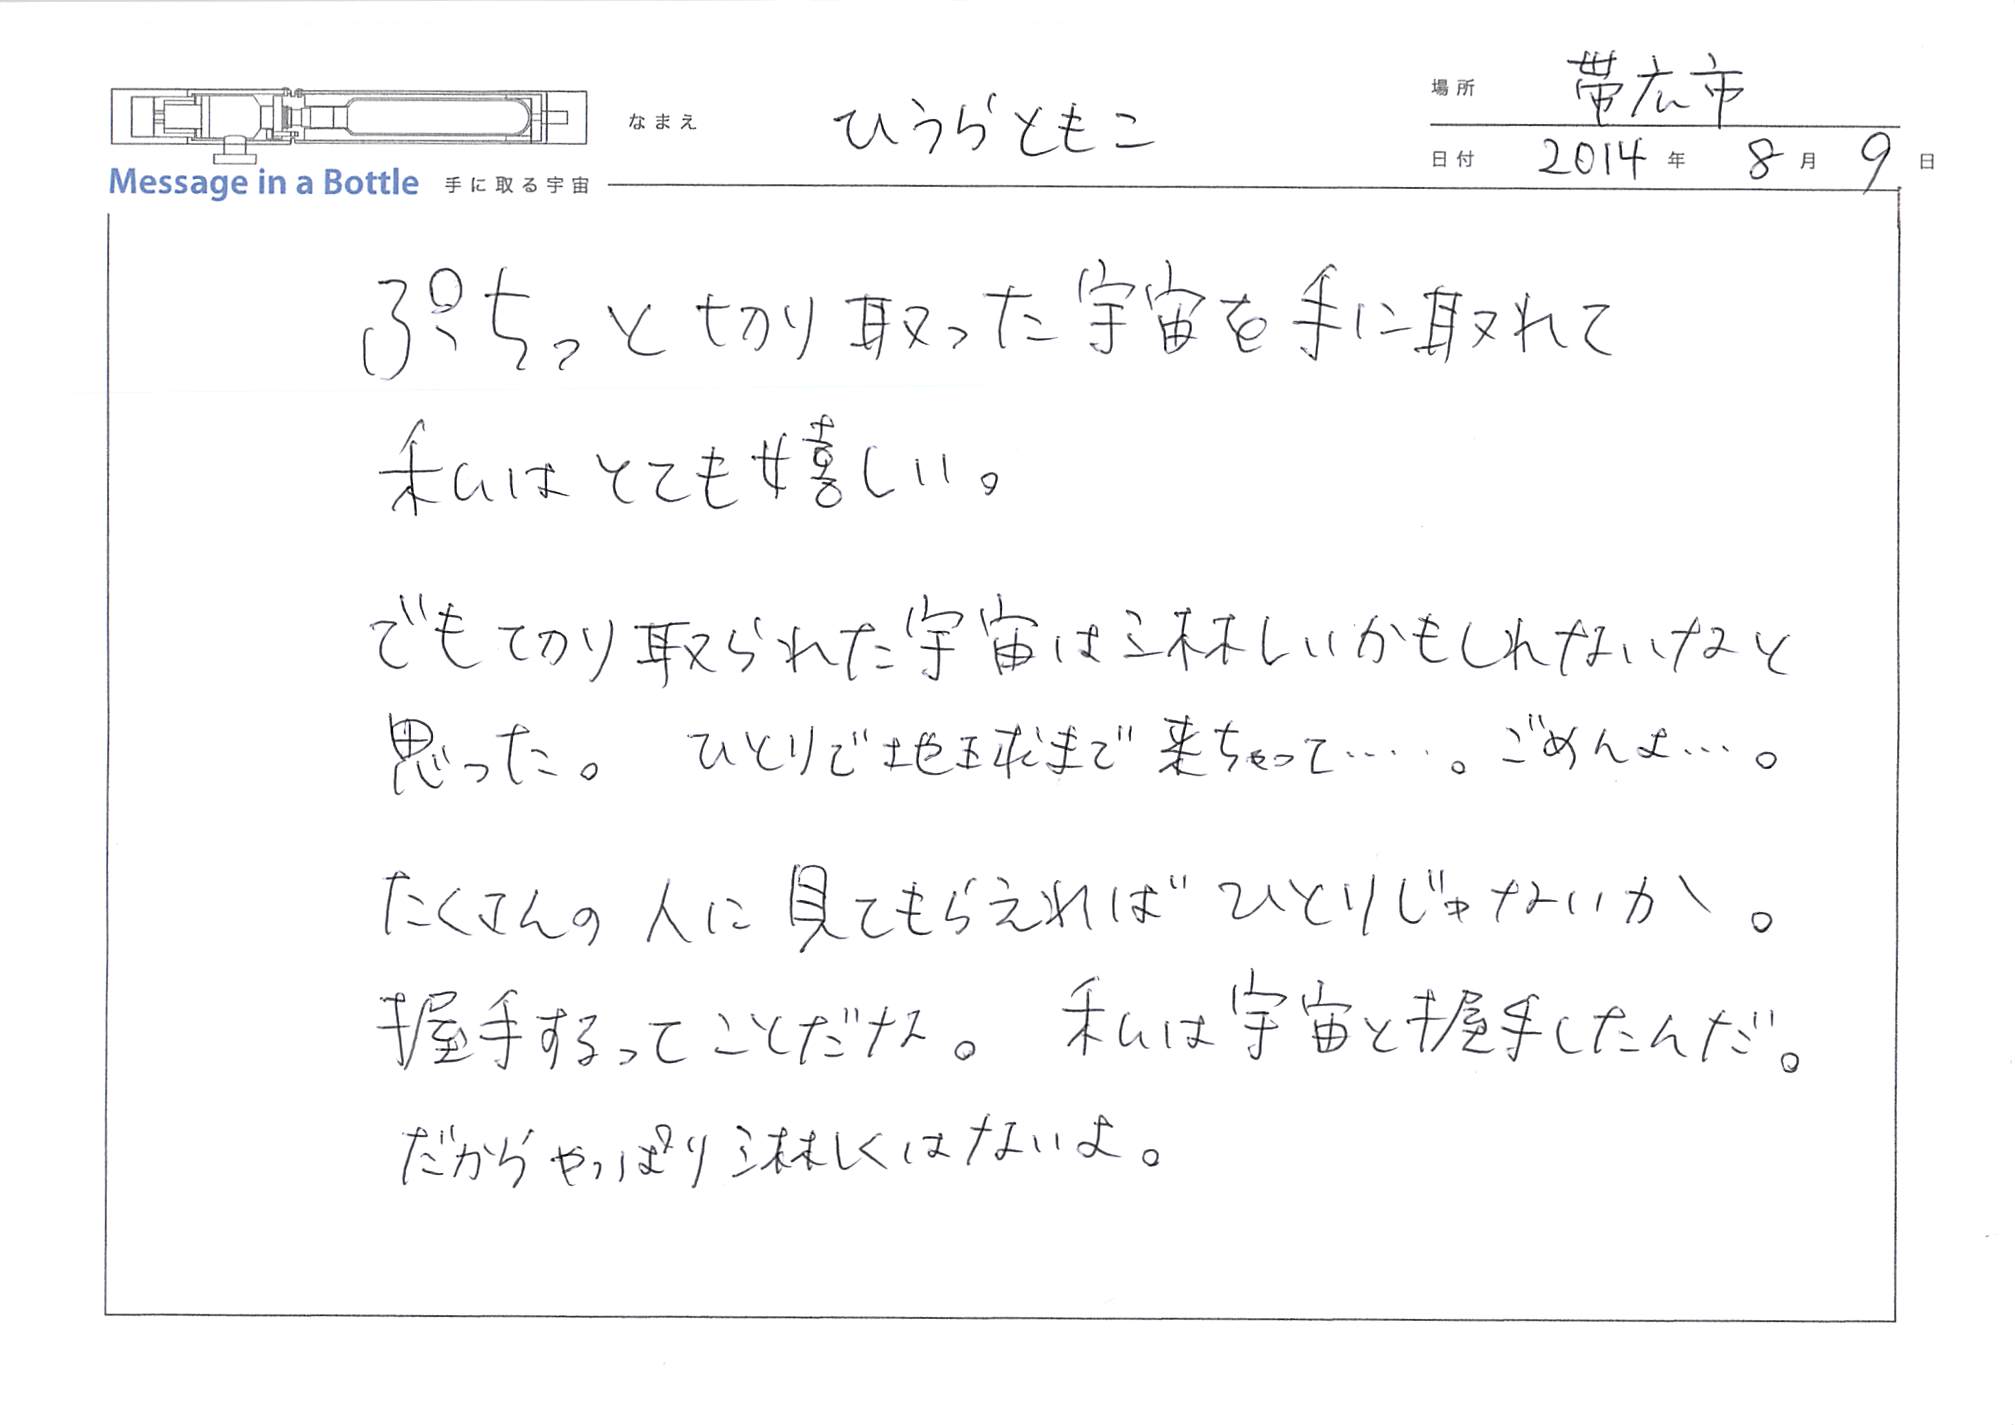 なまえ ひうらともこ
場所 帯広市
日付 2014年 8月 9日
Message in a Bottle 手に取る宇宙
ぷちっと切り取った宇宙を手に取れて
私はとても嬉しい。
でも切り取られた宇宙は淋しいかもしれないなと
思った。 ひとりで地球まで来ちゃって‥‥。ごめんよ…。
たくさんの人に見てもらえれば ひとりじゃないか。
握手するってことだな。 私は宇宙と握手したんだ。
だからやっぱり淋しくはないよ。